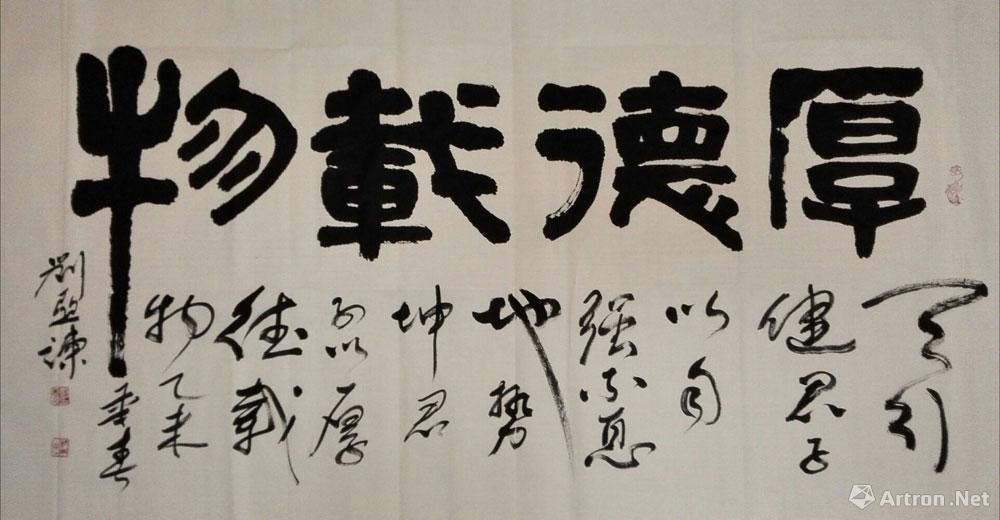 厚德載物
天行
健君子
以自
强不息
地势
坤君
子以厚
德载
物乙未
春
劉
Artron.Net